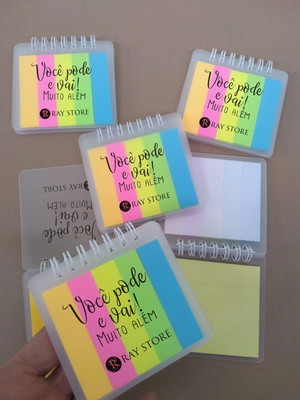 Você pode
e vai!
MUITO ALÉM
R RAY STORE
Você pode
e vai!
MUITO ALÉM
R RAY STORE
Você pode
e vai!
MUITO ALÉM
R RAY STORE
Você pode
e vai!
MUITO ALÉM
R RAY STORE
Você pode
e vai!
MUITO ALÉM
R RAY STORE